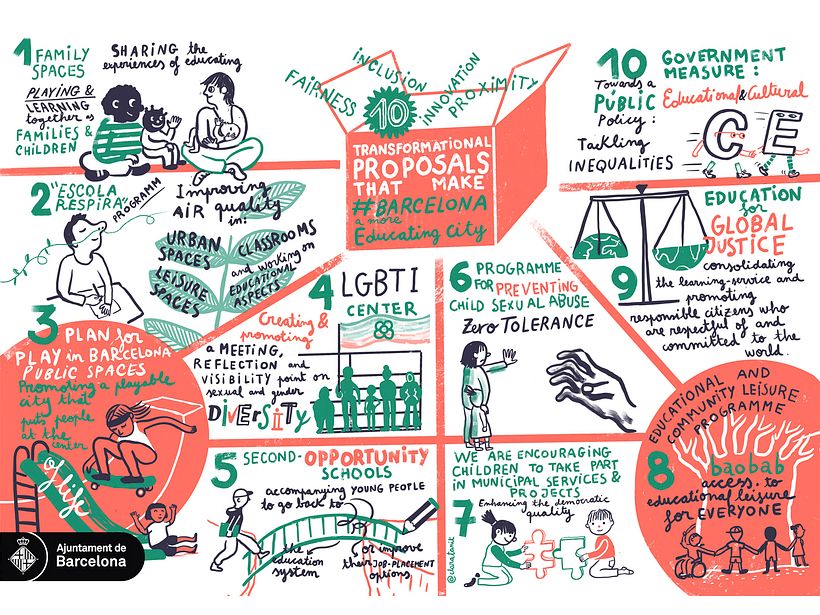 FAIRNESS
INCLUSION
INNOVATION
PROXIMITY
10
TRANSFORMATIONAL
PROPOSALS
THAT MAKE
#BARCELONA
a more
Educating city
1 FAMILY
SPACES
SHARING the
experiences of educating
PLAYING &
LEARNING
together as
FAMILIES &
CHILDREN
2 "ESCOLA
RESPIRA"
PROGRAMM
Improving
AIR quality
in:
URBAN
SPACES
CLASSROOMS
LEISURE
SPACES
and working on
EDUCATIONAL
ASPECTS
3 PLAN for
PLAY in BARCELONA
PUBLIC SPACES
Promoting a playable
city that
puts people
at the
center
of life
4 LGBTI
CENTER
Creating &
promoting
a MEETING,
REFLECTION and
VISIBILITY point on
sexual and gender
DiVERSiTy
5 SECOND-OPPORTUNITY
SCHOOLS
accompanying YOUNG PEOPLE
to go back to
the
education
system
or improve
their JOB-PLACEMENT
options
6 PROGRAMME
FOR PREVENTING
CHILD SEXUAL ABUSE
Zero TOLERANCE
WE ARE ENCOURAGING
CHILDREN TO TAKE PART
IN MUNICIPAL SERVICES &
PROJECTS
7 Enhancing the democratic
quality
@claratanit
EDUCATIONAL AND
COMMUNITY LEISURE
PROGRAMME
8 baobab
access to
educational leisure
for EVERYONE
EDUCATION
for
GLOBAL
JUSTICE
9 consolidating
the learning-service and
promoting
responsible citizens who
are respectful of and
committed to the
world.
10 GOVERNMENT
MEASURE:
Towards a
PUBLIC
Policy:
Educational & Cultural
Tackling
INEQUALITIES
CE
Ajuntament de
Barcelona